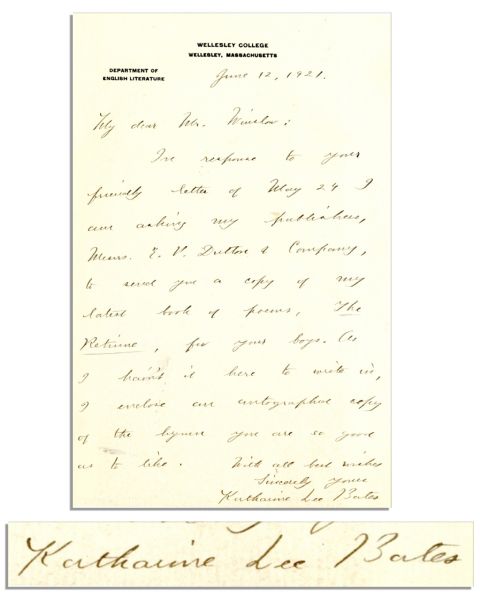 WELLESLEY COLLEGE
WELLESLEY, MASSACHUSETTS
DEPARTMENT OF
ENGLISH LITERATURE
June 12, 1921.
My dear Mr. Winslow:
In response to your
friendly letter of May 24 I
am asking my publishers,
Messrs. E. P. Dutton & Company,
to send you a copy of my
latest book of poems, The
Retinue, for your boys. As
I haven't it here to write in,
I enclose an autographed copy
of the hymn you are so good
as to like. With all best wishes
Sincerely yours
Katharine Lee Bates
Katharine Lee Bates